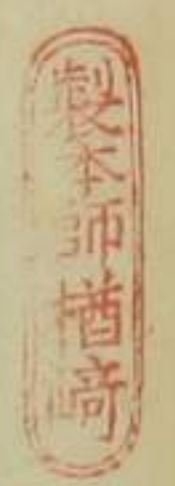 製本師楢﨑